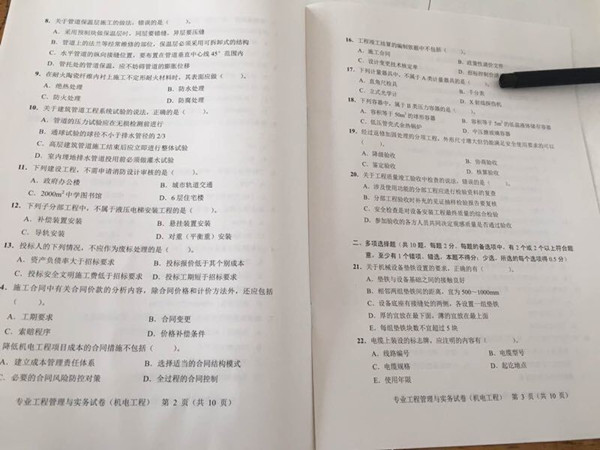 8. 关于管道保温层施工的做法，错误的是（　）。
A. 采用预制块做保温层时，同层要错缝，异层要压缝
B. 管道上的法兰等经常维修的部位，保温层必须采用可拆卸式的结构
C. 水平管道的纵向接缝位置，要布置在管道垂直中心线45°范围内
D. 管托处的管道保温，应不妨碍管道的膨胀位移
9. 在耐火陶瓷纤维内衬上施工不定形耐火材料时，其表面应做（　）。
A. 绝热处理　B. 防水处理
C. 防火处理　D. 防腐处理
10. 关于建筑管道工程系统试验的说法，正确的是（　）。
A. 管道的压力试验应在无损检测前进行
B. 通球试验的球径不小于排水管径的2/3
C. 高层建筑管道施工结束后应立即进行整体试验
D. 室内埋地排水管道投用前必须做灌水试验
11. 下列建设工程，不需申请消防设计审核的是（　）。
A. 政府办公楼　B. 城市轨道交通
C. 2000m²中学图书馆　D. 6层住宅楼
12. 下列子分部工程中，不属于液压电梯安装工程的是（　）。
A. 补偿装置安装　B. 悬挂装置安装
C. 导轨安装　D. 对重（平衡重）安装
13. 投标人的下列情况，不应作为废标处理的是（　）。
A. 资产负债率大于招标要求　B. 投标报价低于其个别成本
C. 投标安全文明施工费低于招标要求　D. 投标工期短于招标要求
4. 施工合同中有关合同价款的分析内容，除合同价格和计价方法外，还应包括
（　）。
A. 工期要求　B. 合同变更
C. 索赔程序　D. 价格补偿条件
降低机电工程项目成本的合同措施不包括（　）。
A. 建立成本管理责任体系　B. 选择适当的合同结构模式
C. 必要的合同风险防控对策　D. 全过程的合同控制
专业工程管理与实务试卷（机电工程）　第 2 页（共 10 页）
16. 工程竣工结算的编制依据中不包括（　）。
A. 合同　B. 政策性调价文件
C. 设计变更技术核定单　D.
17. 下列计量器具中，不属于A类计量器具的是（　）。
A. 直角尺检具　B. 千分表
C. 立式光学计　D. X射线探伤机
18. 下列容器中，属于Ⅲ类压力容器的是（　）。
A. 容积等于50m³的球罐　B. 容积等于5m³的低温液体储存容器
C. 低压管壳式余热锅炉　D. 中压搪玻璃容器
19. 经过返修加固处理的分项工程，外形尺寸增大但仍能满足安全使用要求的可以
（　）。
A. 降级验收　B. 协商验收
C. 鉴定验收　D. 核算验收
20. 关于工程质量竣工验收中检查的说法，错误的是（　）。
A. 涉及使用功能的分部工程应进行检验资料的复查
B. 分部工程验收时补充的见证抽样检验报告要复核
C. 安全检查是对设备安装工程最终质量的综合检验
D. 参加验收的各方人员共同决定观感质量是否通过验收
二、多项选择题（共 10 题，每题 2 分．每题的备选项中，有 2 个或 2 个以上符合题
意，至少有 1 个错项．错选，本题不得分；少选，所选的每个选项得 0.5 分）
21. 关于机械设备垫铁设置的要求，正确的有（　）。
A. 垫铁与设备基础之间的接触良好
B. 相邻两组垫铁间的距离，宜为500～1000mm
C. 设备底座有接缝处的两侧，各设置一组垫铁
D. 厚的宜放在最下面，薄的宜放在最上面
E. 每组垫铁块数不宜超过5块
22. 电缆上装设的标志牌，应注明的内容有（　）。
A. 线路编号　B. 电缆型号
C. 电缆规格　D. 起讫地点
E. 使用年限
专业工程管理与实务试卷（机电工程）　第 3 页（共 10 页）